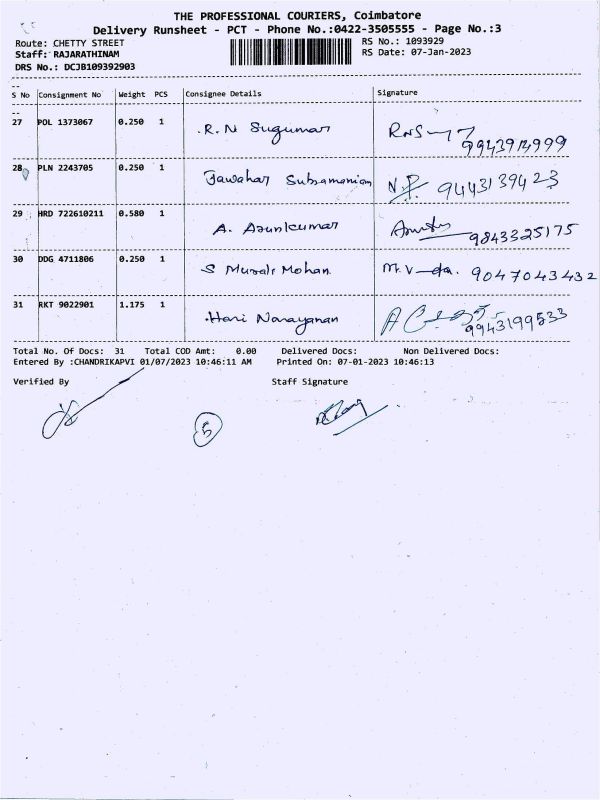 THE PROFESSIONAL COURIERS, Coimbatore
Delivery Runsheet - PCT - Phone No.:0422-3505555 - Page No.:3
Route: CHETTY STREET RS No.: 1093929
Staff: RAJARATHINAM RS Date: 07-Jan-2023
DRS No.: DCJB109392903
S No Consignment No Weight PCS Consignee Details Signature
27 POL 1373067 0.250 1 R.N Sugumar RNS
9943914999
28 PLN 2243705 0.250 1 Jawahar Subramanian N.P. 9443139423
29 HRD 722610211 0.580 1 A. Arunkumar
9843325175
30 DDG 4711806 0.250 1 S Murali Mohan 9047043432
31 RKT 9022901 1.175 1 Hari Narayanan
9943199533
Total No. Of Docs: 31 Total COD Amt: 0.00 Delivered Docs: Non Delivered Docs:
Entered By :CHANDRIKAPVI 01/07/2023 10:46:11 AM Printed On: 07-01-2023 10:46:13
Verified By Staff Signature
5